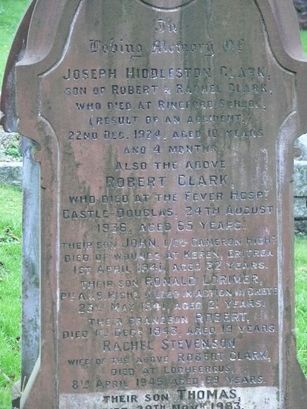 In
Loving Memory Of
JOSEPH HIDDLESTON CLARK,
SON OF ROBERT & RACHEL CLARK,
WHO DIED AT RINGFORD SCHOOL,
(RESULT OF AN ACCIDENT,)
22ND DEC. 1924, AGED 10 YEARS
AND 4 MONTHS.
ALSO THE ABOVE
ROBERT CLARK,
WHO DIED AT THE FEVER HOSPT
CASTLE-DOUGLAS, 24TH AUGUST
1936, AGED 65 YEARS.
THEIR SON JOHN CAMERON HIGHT
DIED OF WOUNDS AT KEREN, ERITREA
1ST APRIL 1941, AGED 32 YEARS.
THEIR SON RONALD LORIMER,
KILLED IN ACTION
MAY 1941, AGED YEARS.
THEIR GRANDSON ROBERT,
DIED SEPT 1943, AGED 13 YEARS.
RACHEL STEVENSON
WIFE OF THE ABOVE ROBERT CLARK,
DIED AT LOCHFERGUS,
8TH APRIL 1945, AGED 69 YEARS.
THEIR SON THOMAS,
20TH NOVR 1963